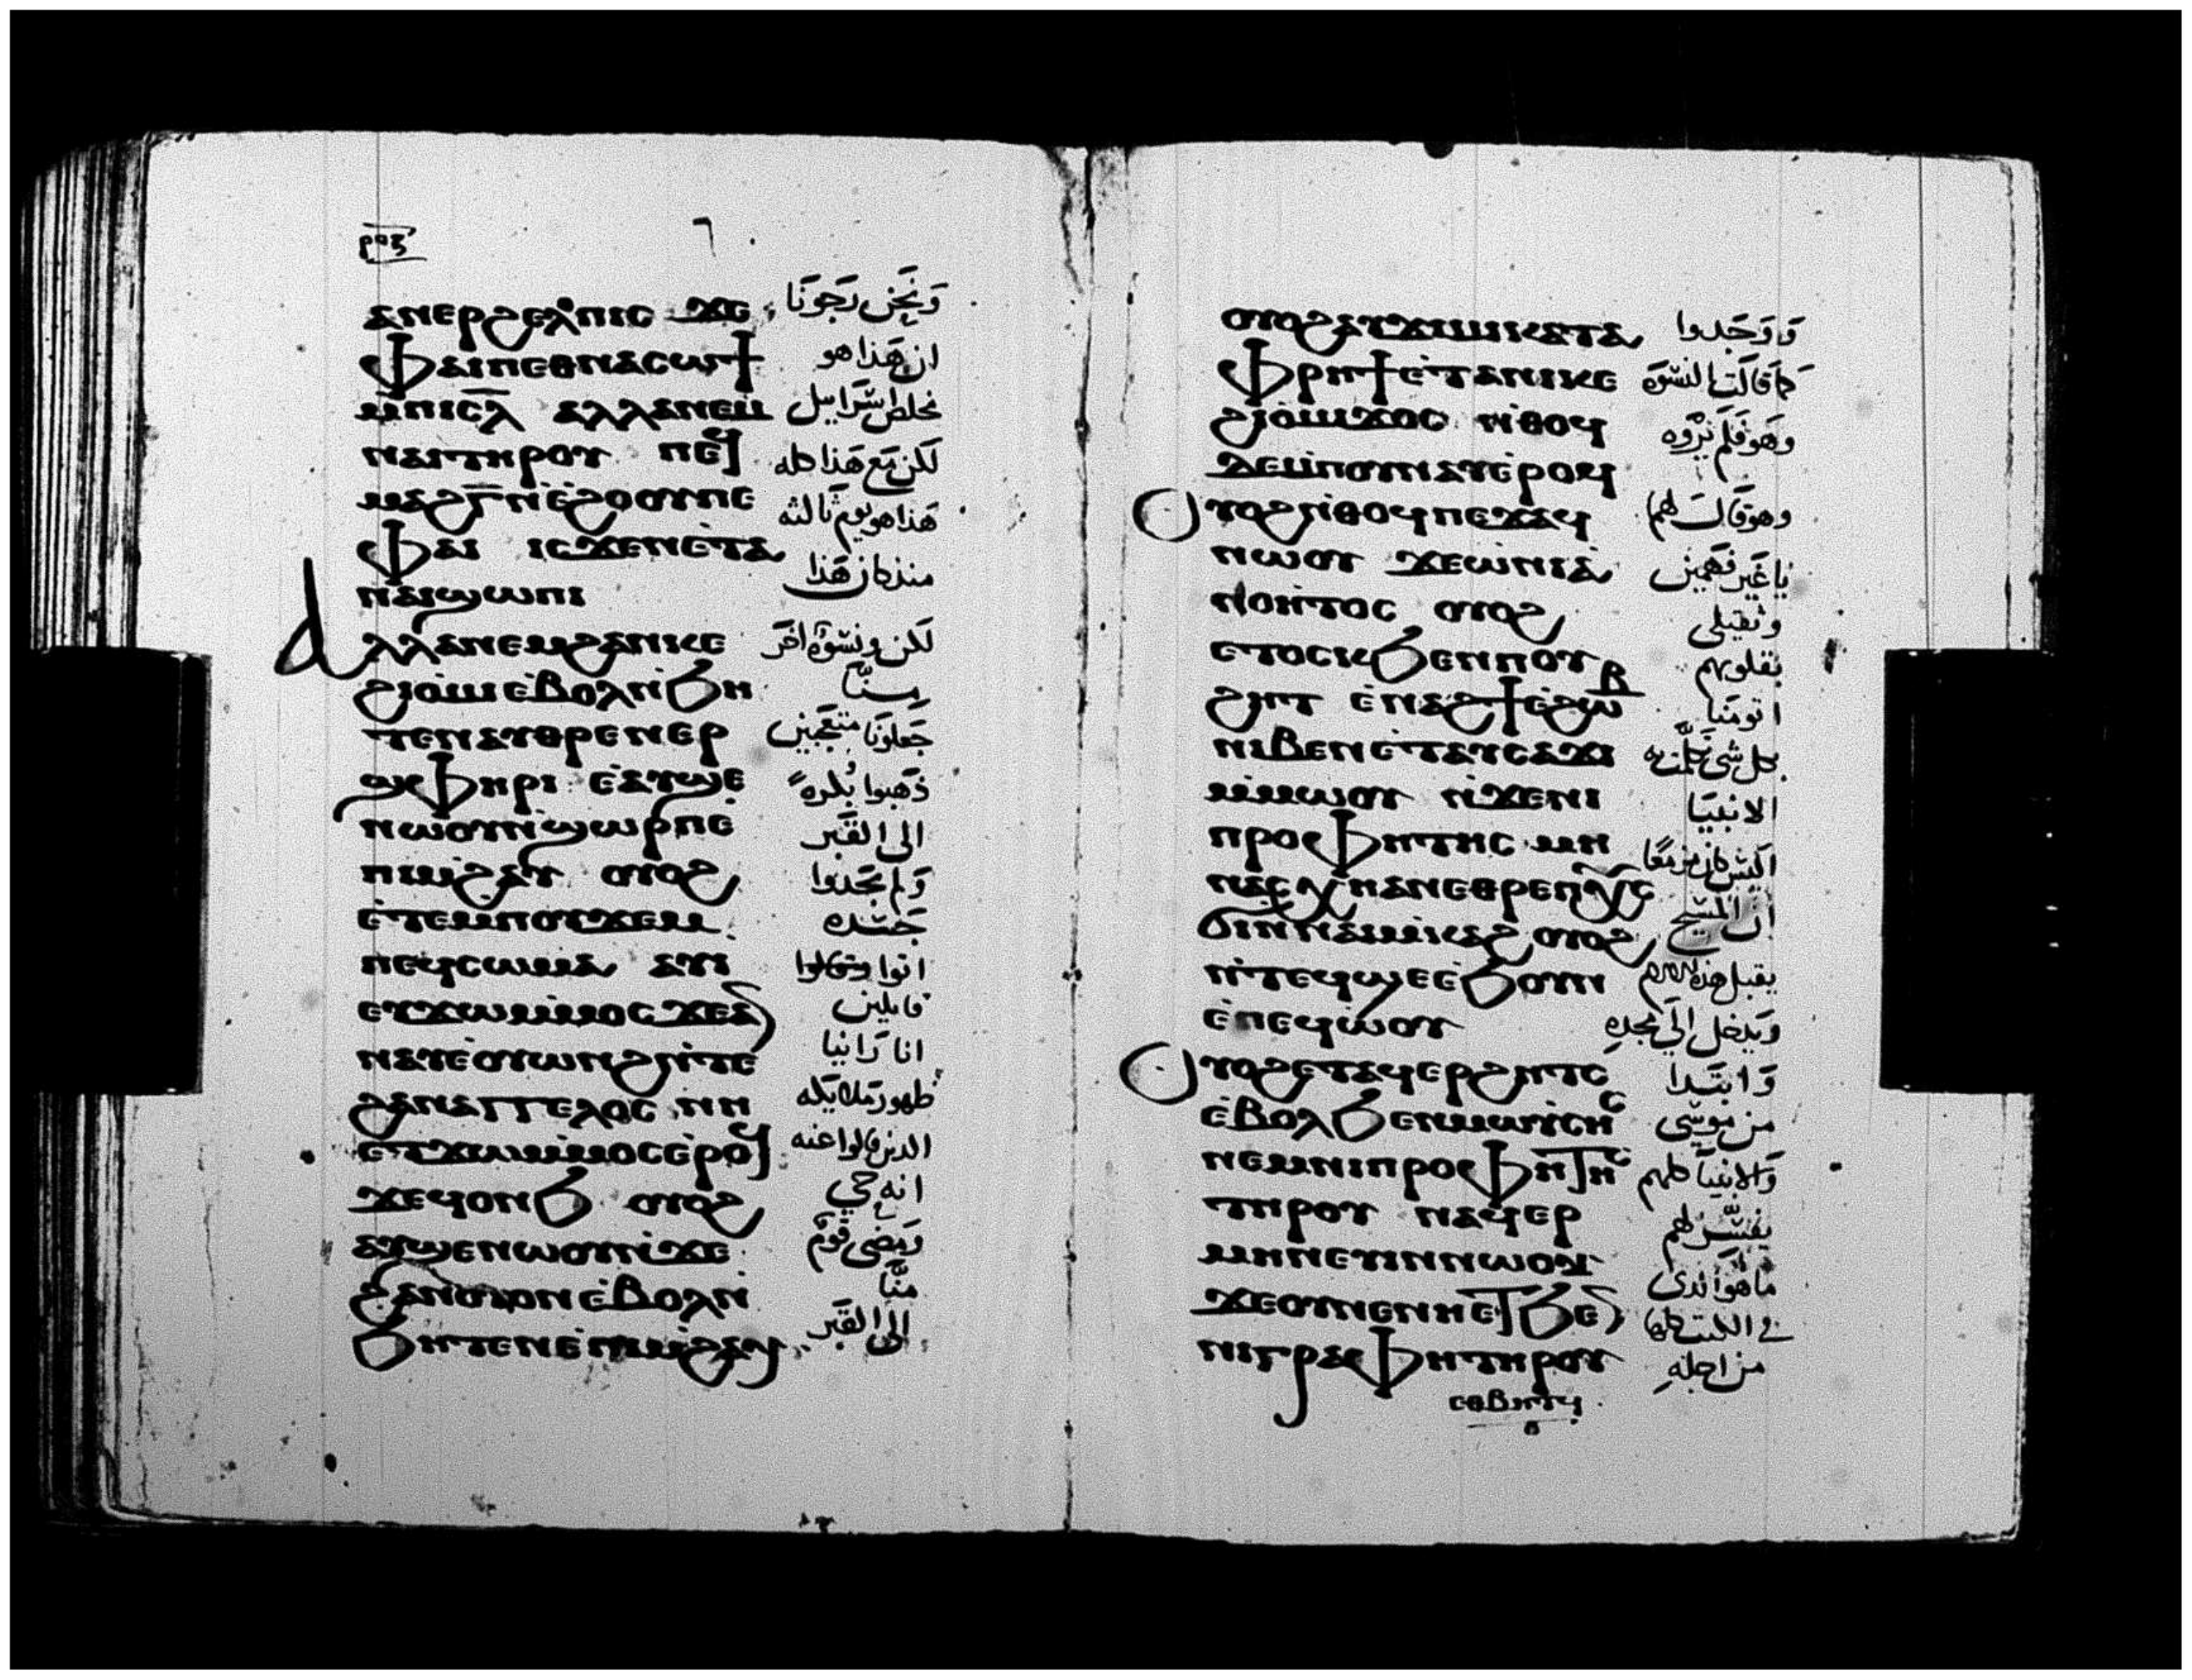 ⲣⲟⲍ
ⲁⲛⲉⲣϩⲉⲗⲡⲓⲥ ϫⲉ ونحن رجونا
ⲫⲁⲓⲡⲉⲑⲛⲁⲥⲱϯ ان هذا هو
ⲙⲡⲓⲥ̅ⲗ ⲁⲗⲗⲁⲛⲉⲙ مخلص اسراييل
ⲛⲁⲓⲧⲏⲣⲟⲩ لكن مع هذا كله
ⲙⲁϩⲅ̅ⲛ̀ⲉ̀ϩⲟⲟⲩⲡⲉ هذا هو يوم ثالثه
ⲫⲁⲓ ⲓⲥϫⲉⲛⲉ̀ⲧⲁ منذ كان هذا
ⲛⲁⲓϣⲱⲡⲓ
ⲁⲗⲗⲁⲛⲉⲙϩⲁⲛⲕⲉ لكن ونسوة اخر
ϩⲓⲟ̀ⲙⲓⲉ̀ⲃⲟⲗⲛ̀ϧⲏ منا
ⲧⲉⲛⲁⲩⲑⲣⲉⲛⲉⲣ جعلونا متعجبين
ϣⲫⲏⲣⲓ ⲉ̀ⲁⲩϣⲉ ذهبوا بكره
ⲛⲱⲟⲩⲛ̀ϣⲱⲣⲡⲉ الى القبر
ⲡⲓⲙ̀ϩⲁⲩ ⲟⲩⲟϩ ولم يجدوا
ⲉ̀ⲧⲉⲙⲡⲟⲩϫⲉⲙ جسده
ⲡⲉϥⲥⲱⲙⲁ ⲁⲩⲓ اتوا
ⲉⲩϫⲱⲙ̀ⲙⲟⲥ ϫⲉⲁ قايلين
ⲛⲁⲩⲉ̀ⲟⲩⲱⲛϩⲛ̀ⲧⲉ اننا راينا
ϩⲁⲛⲁⲅⲅⲉⲗⲟⲥ ⲛⲏ ظهور ملايكه
ⲉⲧϫⲱⲙ̀ⲙⲟⲥⲉ̀ⲣⲟϥ الذين قالوا عنه
ϫⲉϥⲟⲛϧ ⲟⲩⲟϩ انه حي
ⲁⲩϣⲉⲛⲱⲟⲩⲛ̀ϫⲉ ومضى قوم
ϩⲁⲛⲟⲩⲟⲛⲉ̀ⲃⲟⲗⲛ̀ منا
ϧⲏⲧⲉⲛⲉ̀ⲡⲓⲙ̀ϩⲁⲩ الى القبر
ⲟⲩⲟϩⲁⲩϫⲓⲙⲓⲕⲁⲧⲁ ووجدوا
ⲫⲣⲏϯⲉ̀ⲧⲁⲛⲓⲕⲉ كما قالت النسوة
ϩⲓⲟ̀ⲙⲓϫⲟⲥ ⲛ̀ⲑⲟϥ وهو فلم نروه
ϫⲉⲙ̀ⲡⲟⲩⲛⲁⲩⲉ̀ⲣⲟϥ
ⲟⲩⲟϩⲛ̀ⲑⲟϥⲡⲉϫⲁϥ وهو قال لهم
ⲛⲱⲟⲩ ϫⲉⲱ̀ⲛⲓⲁ̀ ياغير فهمين
ⲛⲟⲏⲧⲟⲥ ⲟⲩⲟϩ وثقيلى
ⲉⲧⲟⲥⲕϧⲉⲛⲡⲟⲩ بقلوبهم
ϩⲏⲧ ⲉ̀ⲛⲁϩϯⲉ̀ϩⲱⲃ
ⲛⲓⲃⲉⲛⲉ̀ⲧⲁⲩⲥⲁϫⲓ بكل شى تكلمت به
ⲙ̀ⲙⲱⲟⲩ ⲛ̀ϫⲉⲛⲓ الانبيا
ⲡⲣⲟⲫⲏⲧⲏⲥ ⲙⲏ اليس كان مزمعا
ⲛⲁⲥⲭⲏⲁⲛⲉⲑⲣⲉⲡⲭ̅ⲥ ان المسيح
ϭⲓⲛⲛⲁⲓⲙ̀ⲕⲁϩ ⲟⲩⲟϩ
ⲛ̀ⲧⲉϥϣⲉⲉ̀ϧⲟⲩⲛ يقبل هذه
ⲉ̀ⲡⲉϥⲱ̀ⲟⲩ ويدخل الى مجده
ⲟⲩⲟϩⲉⲧⲁϥⲉⲣϩⲏⲧⲥ وابتدا
ⲉ̀ⲃⲟⲗϧⲉⲛⲙⲱⲩ̀ⲥⲏⲥ من موسى
ⲛⲉⲙⲛⲓⲡⲣⲟⲫⲏⲧⲏⲥ والانبيا كلهم
ⲧⲏⲣⲟⲩ ⲛⲁϥⲉⲣ يفسر لهم
ⲙⲏⲛⲉⲩⲓⲛⲛⲱⲟⲩ ما هو الذى
ϫⲉⲟⲩⲛⲉⲛⲏⲉⲧϧⲉⲛ في الكتب كلها
ⲛⲓⲅⲣⲁⲫⲏⲧⲏⲣⲟⲩ من اجله
ⲉⲑⲃⲏⲧϥ